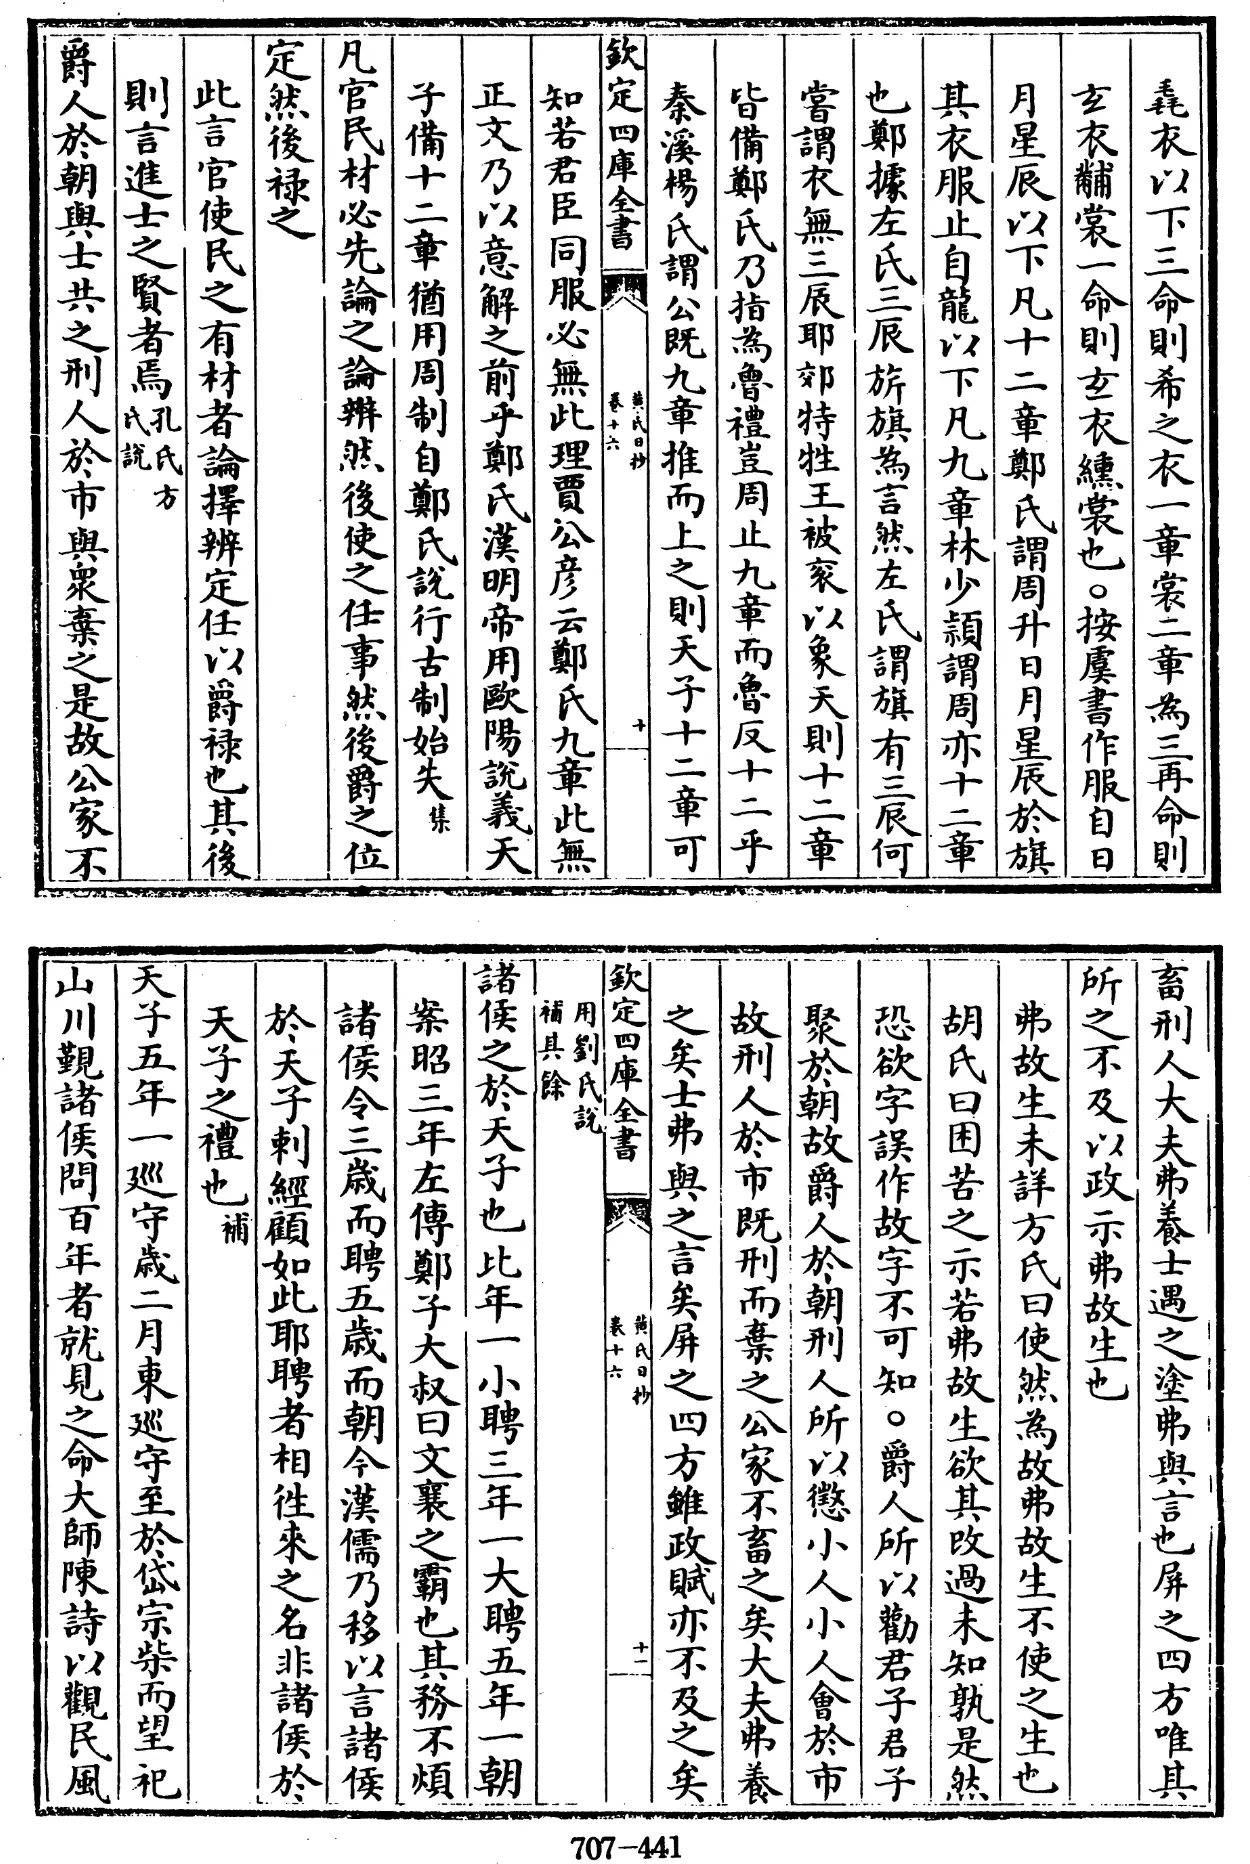 毳衣以下三命則希之衣一章裳二章為三再命則
玄衣黼裳一命則玄衣纁裳也○按虞書作服自日
月星辰以下凡十二章鄭氏謂周升日月星辰於旗
其衣服止自龍以下凡九章林少穎謂周亦十二章
也鄭據左氏三辰旂旗為言然左氏謂旗有三辰何
嘗謂衣無三辰耶郊特牲王被衮以象天則十二章
皆備鄭氏乃指為魯禮豈周止九章而魯反十二乎
秦溪楊氏謂公既九章推而上之則天子十二章可
欽定四庫全書
黃氏日抄
卷十六
十
知若君臣同服必無此理賈公彦云鄭氏九章此無
正文乃以意解之前乎鄭氏漢明帝用歐陽說義天
子備十二章猶用周制自鄭氏說行古制始失集
凡官民材必先論之論辨然後使之任事然後爵之位
定然後禄之
此言官使民之有材者論擇辨定任以爵禄也其後
則言進士之賢者焉孔氏方
氏說
爵人於朝與士共之刑人於市與眾棄之是故公家不
畜刑人大夫弗養士遇之塗弗與言也屏之四方唯其
所之不及以政示弗故生也
弗故生未詳方氏曰使然為故弗故生不使之生也
胡氏曰困苦之示若弗故生欲其改過未知孰是然
恐欲字誤作故字不可知○爵人所以勸君子君子
聚於朝故爵人於朝刑人所以懲小人小人會於市
故刑人於市既刑而棄之公家不畜之矣大夫弗養
之矣士弗與之言矣屏之四方雖政賦亦不及之矣
欽定四庫全書
黃氏日抄
卷十六
十一
用劉氏說
補其餘
諸侯之於天子也比年一小聘三年一大聘五年一朝
案昭三年左傳鄭子大叔曰文襄之霸也其務不煩
諸侯令三歲而聘五歲而朝今漢儒乃移以言諸侯
於天子剌經顧如此耶聘者相徃來之名非諸侯於
天子之禮也補
天子五年一巡守歲二月東巡守至於岱宗柴而望祀
山川覲諸侯問百年者就見之命大師陳詩以觀民風
707-441